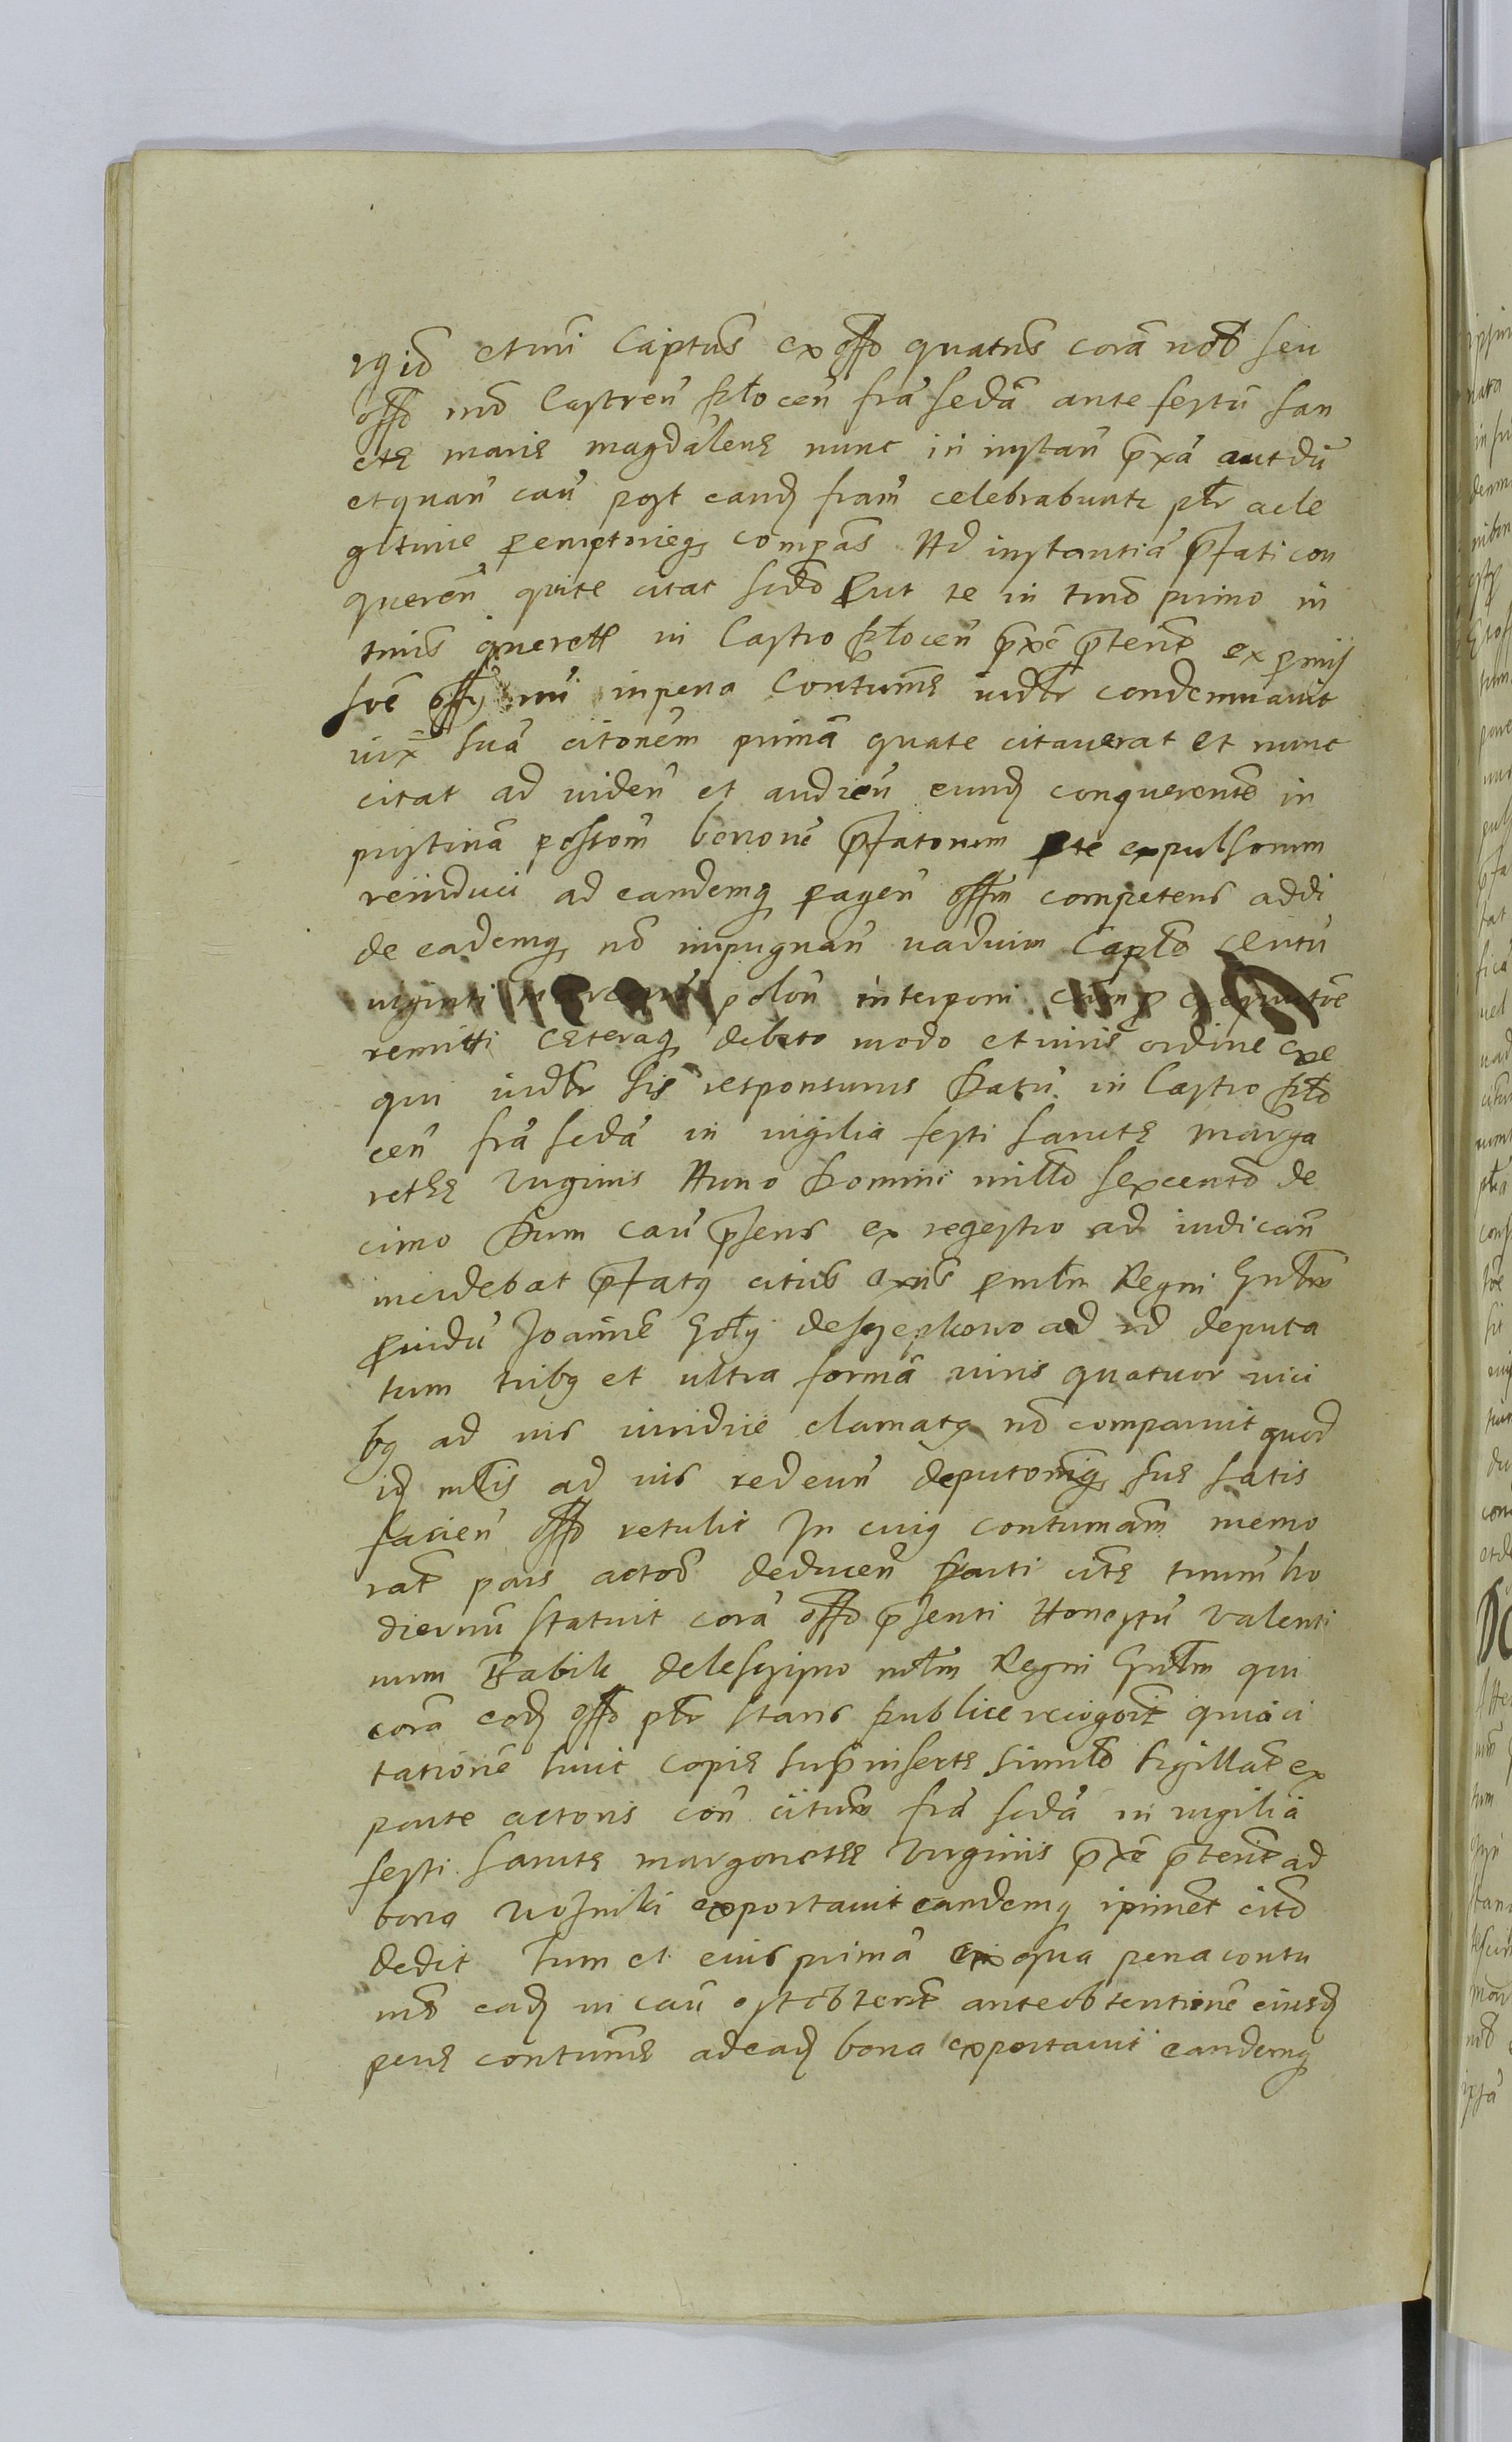 etiuri Captus ex offo quatus corã nob seu
offo nro Castren̄ Płocen̄ fra sedã ante festũ san
ctę marię magdalenę nunc in instan̄ prxã aut dũ
et quan̄ cau̅ post eand fram celebrabuntr ptr acle
gitime peremptorieq compãs Ad instantiã pfati con
queren̄ qui te citat scdo put te in tmno primo in
tmis querell in Castro Płocen̄ prxe preterit ex pmis
soe offi nri in pena Contumę iudtr condemnauit
iux̃ suã citonem primã qua te citauerat et nunc
citat ad uiden̄ et audien̄ eund conquerente in
pristinã possom bonorũ pfatorum per te expulsorum
reinduci ad eandemq pagen̄ offm competens addi
de eademq no impugnan̄ uadium Capto centũ
uiginti polon̄ interponi
remitti cęteraq debito modo et iuris ordine exe
qui iudtr sis responsurus Datũ in Castro Pło
cen̄ fra scdã in uigilia festi sanctę Marga
retęę Virginis Anno Domini millo sexcento de
cimo Dum cau̅ psens ex regestro ad iudican̄
incidebat pfatq citus pmlm Regni Gnlem
puidũ Joannẽ Goły ad id deputa
tum tribq et ultra formã iuris quatuor uici
bq ad ius iuridice clamatq nõ comparuit quod
id mlis ad ius redeun̄ deputonisq suę satis
facien̄ offo retulit In cuiq contumam memo
rat pars actoõ deducen̄ parti citę tmum ho
diernũ statuit corã offo psenti Honestũ Valenti
num Babik mlm Regni Gnlm qui
corã eod offo ptr stans publice recogoit quia ci
tationẽ huic copię supinsertę similo sigillat ex
parte actoris con̄ citum fra scdã in uigilia
festi sanctę margaretęę Virginis prxe preterit ad
bona exportauit eandemq ipimet cito
dedit Tum et eius primã ex qua pena contu
mõ ead in cau̅ est obtent ante obtentionẽ eiusd
penę contumę ad ead bona exportauit eandemq